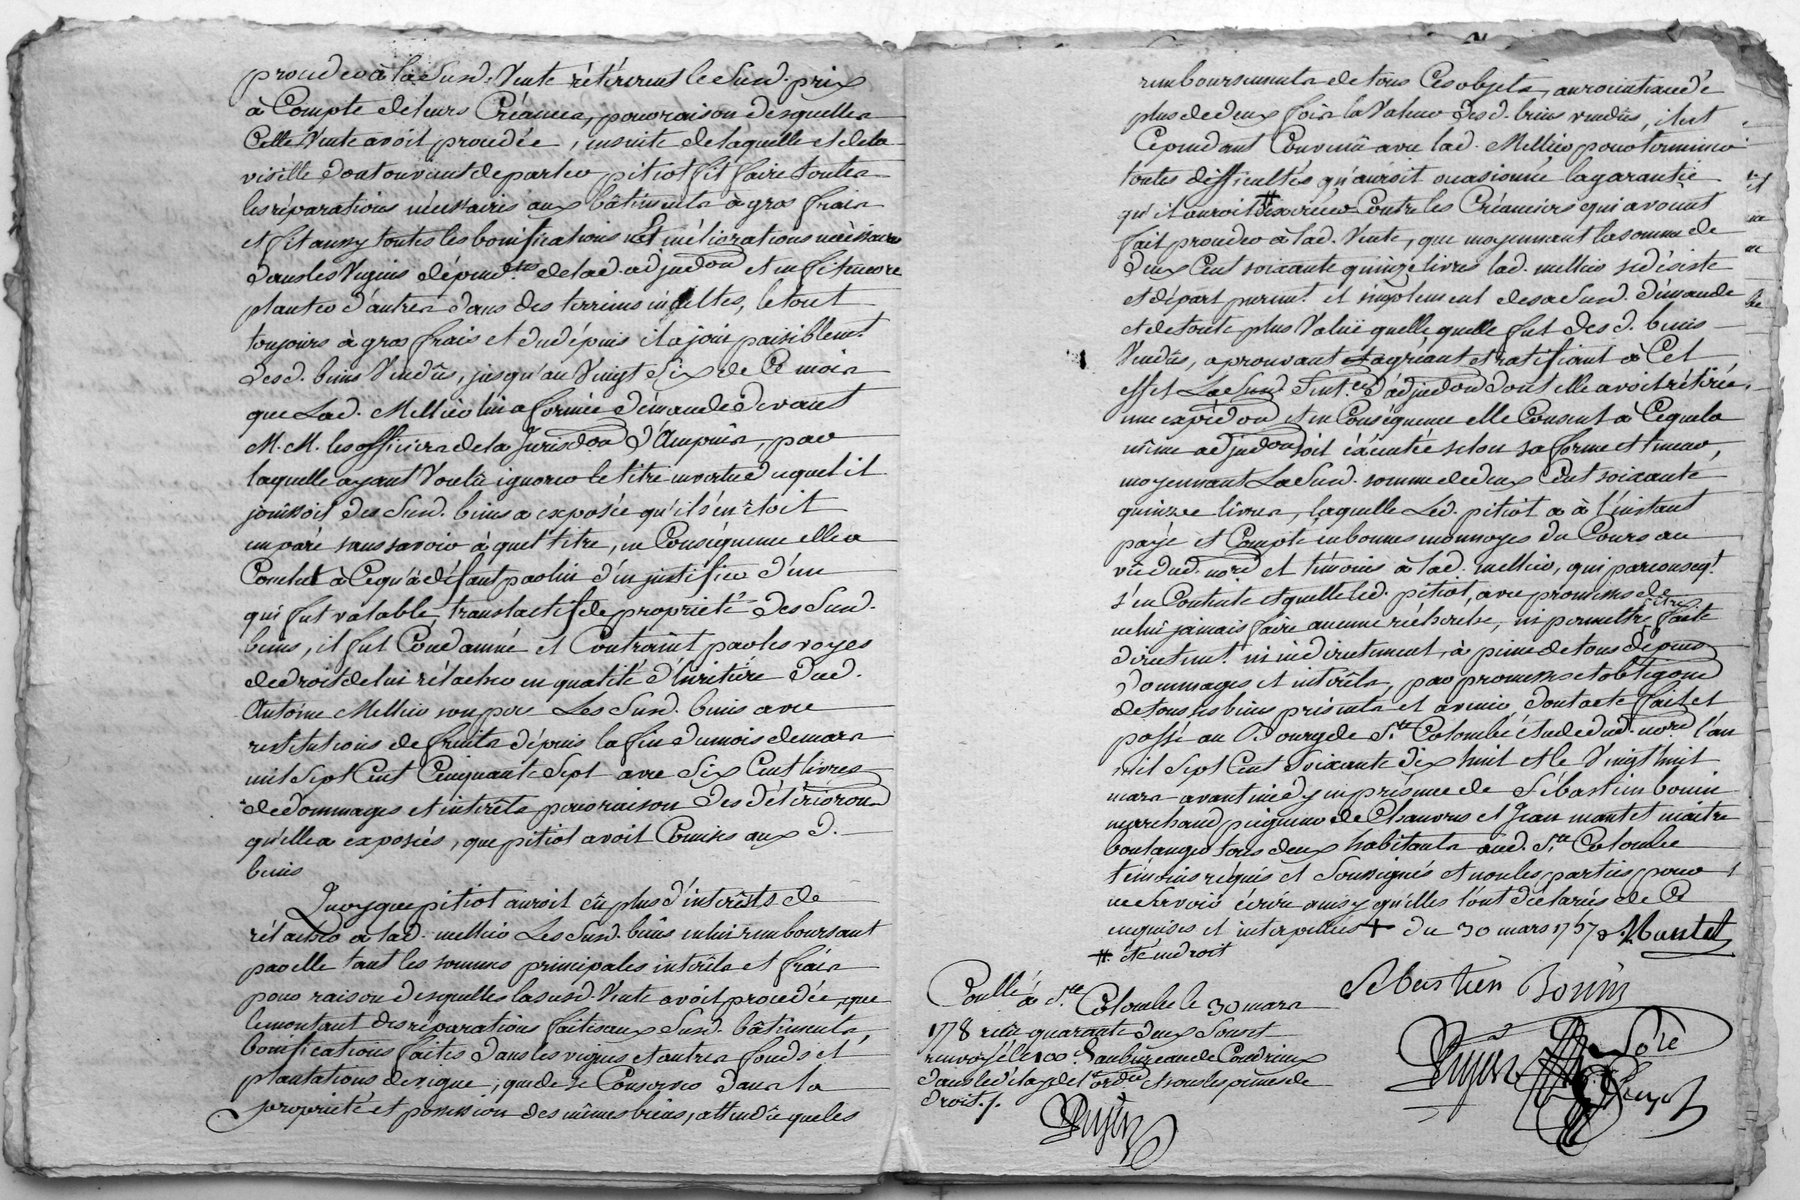 proceder à la Susd. Vente rétirerent le Susd. prix
à Compte de leurs Créances, pour raison desquelles
Cette Vente avoit procedée, ensuite de laquelle et de la
visitte dont on vient de parler pitiot fit faire toutes
les réparations nécessaires aux bâtiments à gros frais
et fit aussy toutes les bonifications et méliorations nécessaires
dans les Vignes dépend.tes de lad. adjudon et en fit encore
planter d'autres dans des terrins incultes, le tout
toujours à gros frais et du dépuis il a joui paisiblemt.
desd. biens Vendûs, jusqu'au Vingt Six de Ce mois
que Lad. Mellier lui a formée démande devant
M.M. les officiers de la Jurisdon d'Ampuis, par
laquelle ayant Voulû ignorer le titre en vertu duquel il
joüissoit des Susd. biens a exposée qu'il s'en étoit
emparé sans savoir à quel titre, en Conséquence elle a
Conclut à Ce qu'à défaut par lui d'en justifier d'un
qui fut valable, translactif de proprieté des Susd.
biens, il fut Condamné et Contraint par les voyes
de droit de lui rélacher en qualité d'héritière dud.
Antoine Mellier son pere Les Susd. biens avec
restitutions de fruits dépuis la fin du mois de mars
mil Sept Cent Cinquante Sept avec Six Cent livres
de dommages et intérêts pour raison des détériorons
qu'elle a exposés, que pitiot avoit Commis aux d.
biens
Quoyque pitiot auroit eû plus d'intérêsts de
rélacher à lad. mellier Les Susd. biens en lui remboursant
par elle tant les sommes principales intérêts et frais
pour raison desquelles la susd. Vente avoit procedée, que
le montant des réparations faites aux Susd. bâtiments,
bonifications faites dans les vignes et autres fonds et
plantations de vigne, que de se Conserver dans la
proprieté et possession des mêmes biens, attendû que les
remboursements de tous Ces objets, auroint excedé
plus de deux fois la Valeur desd. biens vendûs, il est
Cependant Convenû avec lad. Mellier pour terminer
toutes difficultés qu'auroit occasionné la garantie
qu'il auroit # exercer Contre les Créanciers qui avoient
fait proceder à lad. Vente, que moyennant la somme de
deux Cent soixante quinze livres lad. mellier se désiste
et départ puremt. et simplement de sa Susd. démande
et de toute plus Valüe quelle quelle fut des d. biens
Vendûs, aprouvant agréant et ratifiant à Cet
effet La Susd. Sentce d'adjudon dont elle avoit rétirée
une expédon et en Conséquence elle Consent à Ce que la
même adjudon soit éxécutée selon sa forme et teneur,
moyennant La Susd. somme de deux Cent soixante
quinze livres, laquelle Led. pitiot a à l'instant
payé et Compté en bonnes monnoyes du Cours au
vû dud. nore et témoins à lad. mellier, qui par conseqt.
s'en Contente et quitte led. pitiot, avec promesse de
ne lui jamais faire aucune récherche, ni permettre être faite
directemt. ni indirectement, à peine de tous dépens
dommages et intérêts, par promesse et obligons
de tous ses biens présents et avenir, dont acte fait et
passé au Bourg de Ste. Colombe étude dud. nore. l'an
mil Sept Cent Soixante dix huit et le Vingt huit
mars avant midy en présence de Sébastien bonin
marchand peigneur de Chanvres et Jean mantet maitre
boulanger tous deux habitants aud. Ste. Colombe
témoins réquis et Soussignés et non les parties pour
ne Savoir écrire ainsy qu'elles l'ont déclarés de Ce
enquises et interpellées + du 30 mars 1757 Mantet
# été en droit
Sebastien Bonin
Conllé à Ste. Colombe le 30 mars
1778 reçu quarante deux Sous et
renvoyé le 100e. d. au bureau de Condrieux
dans le délay de l'ordce et sous les peines de
droit./.